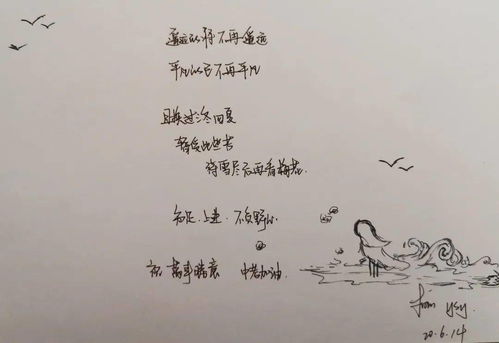 遥远的将不再遥远
平凡的已不再平凡
且挨过三冬四夏
暂受此些苦
待雪尽后再看梅花.
知足.上进.不负野心
祝 万事胜意 中考加油.
from ysy.
20.6.14